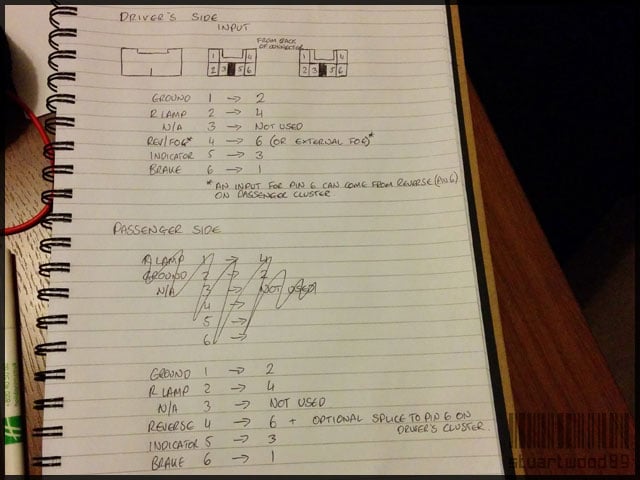 DRIVER'S SIDE
INPUT
FROM BACK
OF CONNECTOR
1 4
2 3 5 6
1 4
2 3 5 6
GROUND 1 → 2
R LAMP 2 → 4
N/A 3 → NOT USED
REV/FOG* 4 → 6 (OR EXTERNAL FOG)*
INDICATOR 5 → 3
BRAKE 6 → 1
* AN INPUT FOR PIN 6 CAN COME FROM REVERSE (PIN 6)
ON PASSENGER CLUSTER
PASSENGER SIDE
R LAMP 1 → 4
GROUND 2 → 2
N/A 3 → NOT USED
4 →
5 →
6 →
GROUND 1 → 2
R LAMP 2 → 4
N/A 3 → NOT USED
REVERSE 4 → 6 + OPTIONAL SPLICE TO PIN 6 ON
DRIVER'S CLUSTER
INDICATOR 5 → 3
BRAKE 6 → 1
stuartwood89